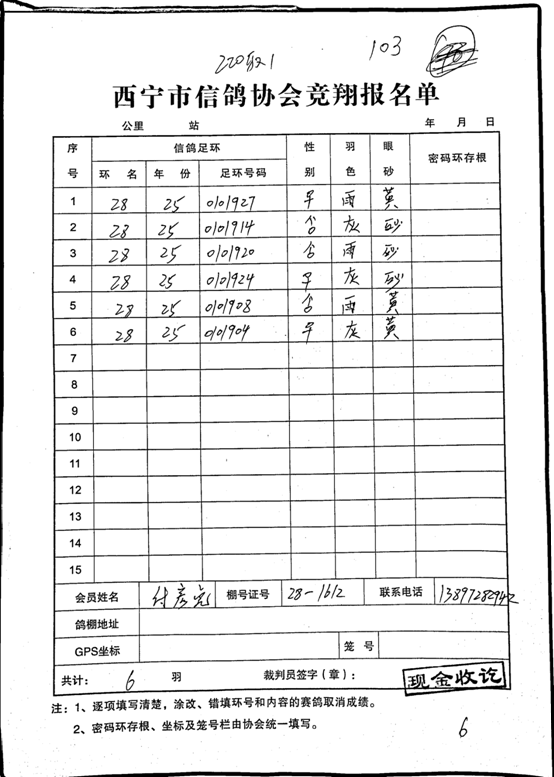 220取1
103
西宁市信鸽协会竞翔报名单
公里 站 年 月 日
序号 信鸽足环 性别 羽色 眼砂 密码环存根
环名 年份 足环号码
1 28 25 0101927 早 雨 黄
2 28 25 0101914 合 灰 砂
3 28 25 0101920 合 雨 砂
4 28 25 0101924 早 灰 砂
5 28 25 0101908 合 雨 黄
6 28 25 0101904 早 灰 黄
7
8
9
10
11
12
13
14
15
会员姓名 付彦彪 棚号证号 28-1612 联系电话 13897282942
鸽棚地址
GPS坐标 笼号
共计: 6 羽 裁判员签字(章): 现金收讫
注:1、逐项填写清楚,涂改、错填环号和内容的赛鸽取消成绩。
2、密码环存根、坐标及笼号栏由协会统一填写。
6